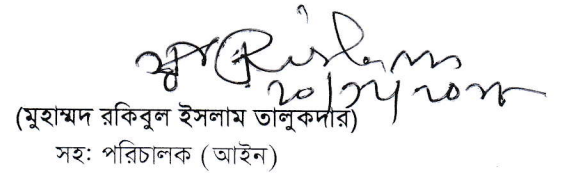 (মুহাম্মদ রকিবুল ইসলাম তালুকদার)
সহঃ পরিচালক (আইন)